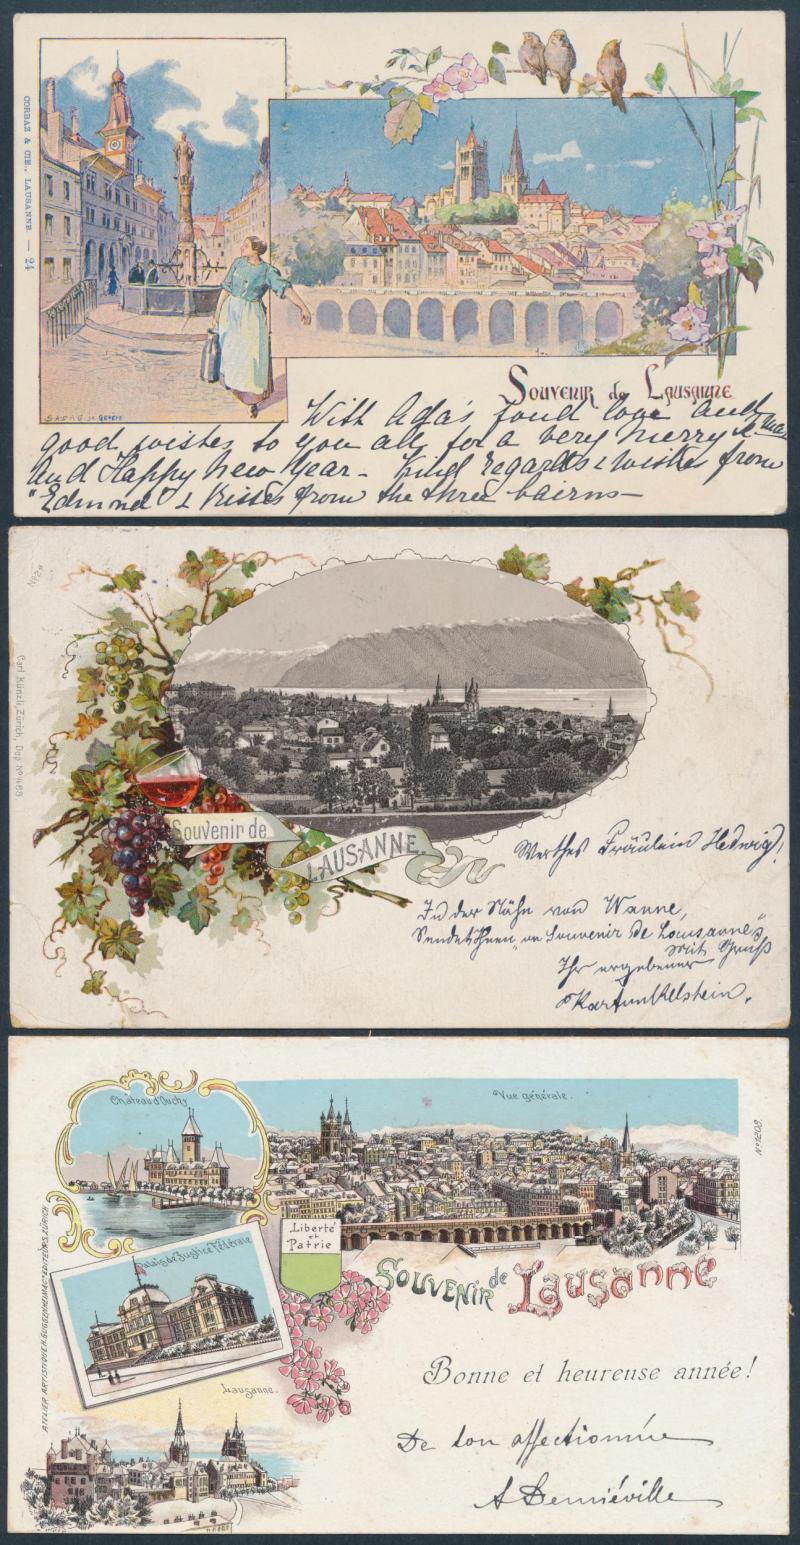 CORBAZ & CIE., LAUSANNE. — 24
S.A.D.A.G. DE GENÈVE
Souvenir de Lausanne
With Ada's fond love and
good wishes to you all for a very merry X-mas
and Happy New Year - Kind regards & wishes from
"Edmond" & Kisses from the three bairns—
Carl Künzli, Zürich, Dep. No
Souvenir de
LAUSANNE.
Werthes Fräulein Hedwig!
In der Nähe von Wanne,
Sendet Ihnen "un Souvenir de Lousanne"
Mit Gruß
Ihr ergebener
Château d'Ouchy
Vue générale.
No 1208.
ATELIER ARTISTIQUE H. GUGGENHEIM & Co EDITEURS, ZÜRICH.
Liberté
et
Patrie
Palais de Justice Fédérale
Souvenir de Lausanne
Bonne et heureuse année!
Lausanne.
De ton affectionnée
A Demiéville